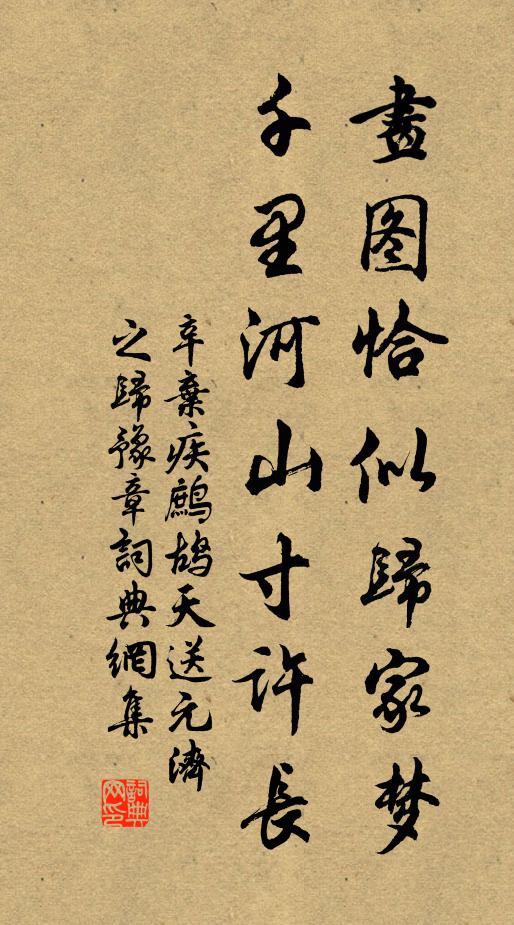 畫图恰似歸家梦
千里河山寸許長
辛棄疾鷓鴣天送元濟
之歸豫章詞典網集
詞典网印